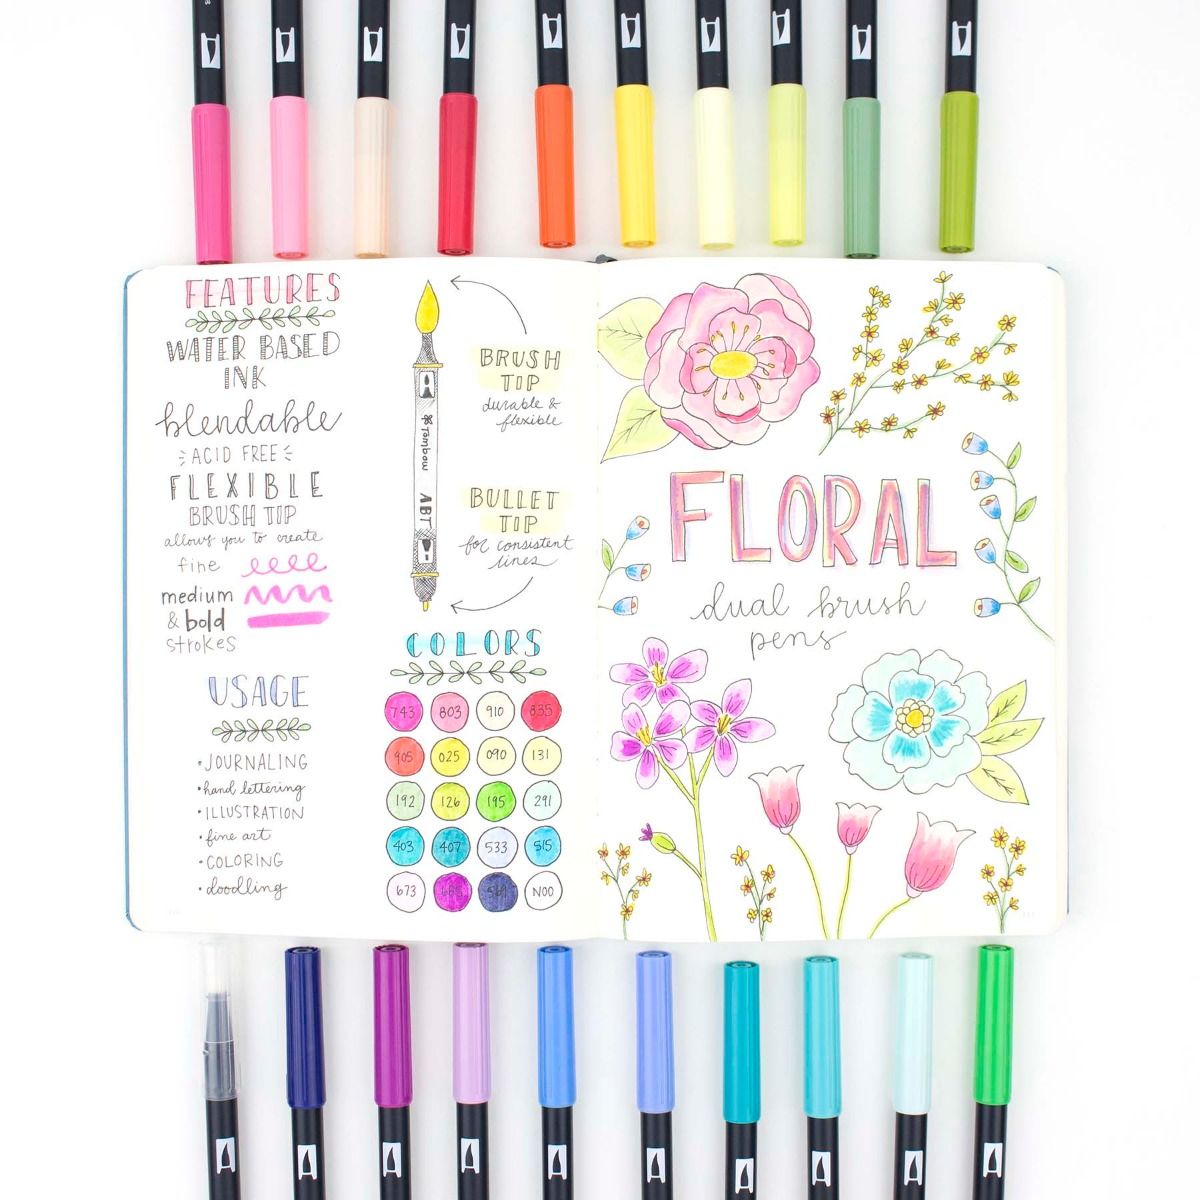 FEATURES
WATER BASED
INK
blendable
ACID FREE
FLEXIBLE
BRUSH TIP
allows you to create
fine
medium
& bold
strokes
USAGE
•JOURNALING
•hand lettering
•ILLUSTRATION
•fine art
•COLORING
•doodling
BRUSH
TIP
durable &
flexible
Tombow
ABT
BULLET
TIP
for consistent
lines
COLORS
743 803 910 835
905 025 090 131
192 126 195 291
403 407 533 515
673 685 569 N00
FLORAL
dual brush
pens